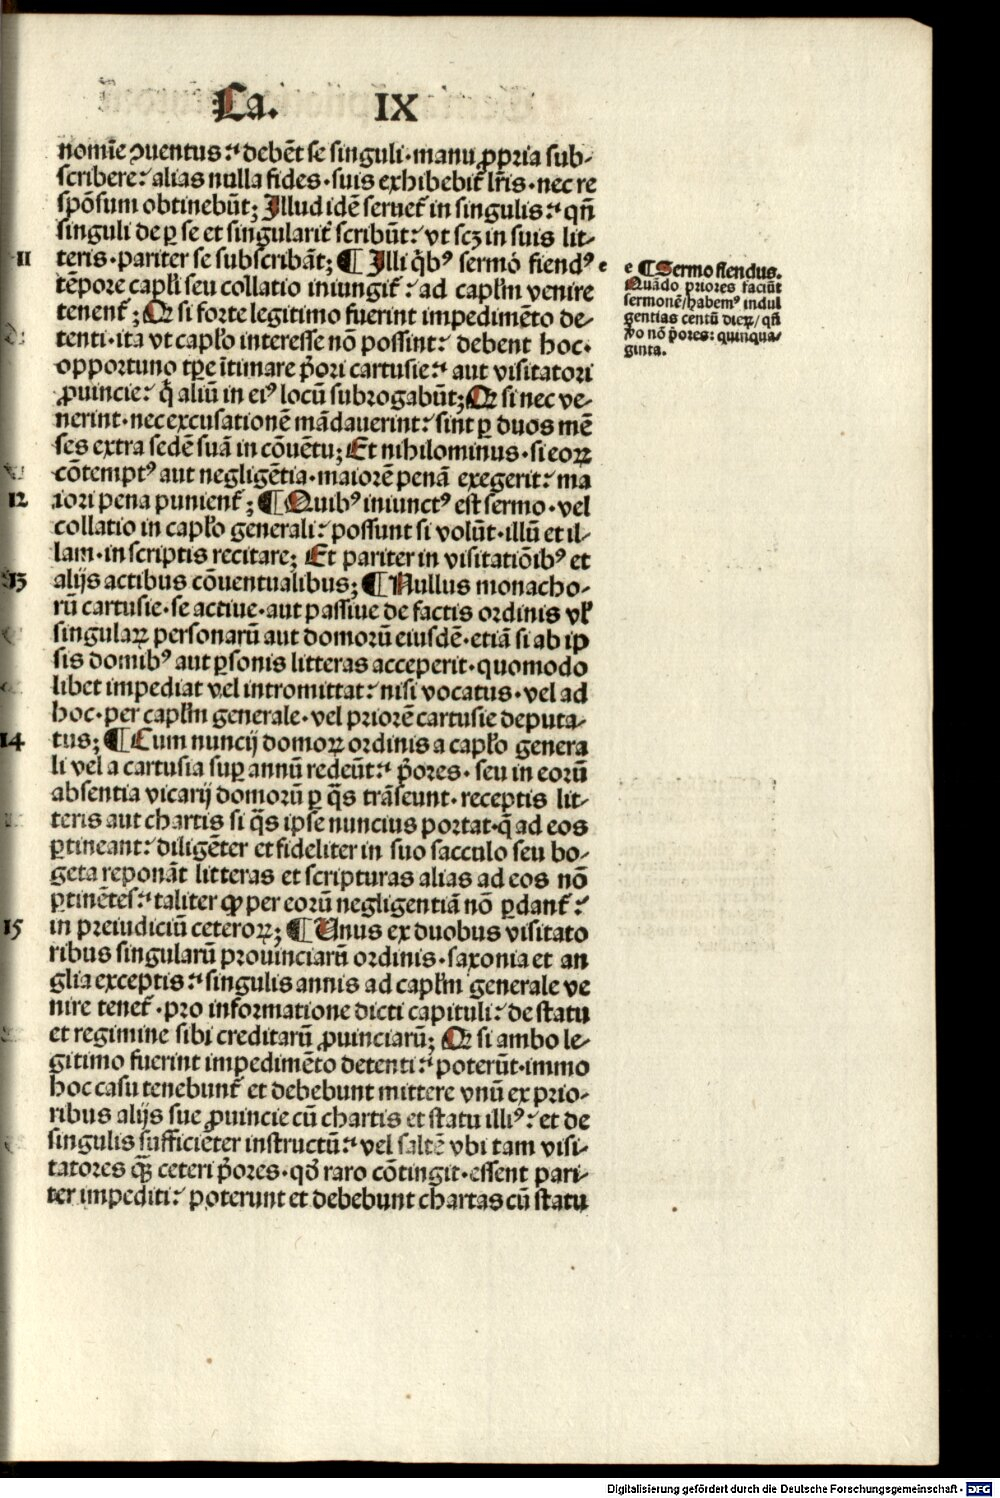 Ca. IX
nomīe ꝯuentus:' debēt se singuli·manu ꝓpria sub-
scribere:' alias nulla fides·suis exhibebit̃ lr̃is·nec re
spōsum obtinebūt; Illud idē seruet̃ in singulis:' qñ
singuli de ꝑ se et singularit̃ scribūt:' vt scꝫ in suis lit-
11 teris·pariter se subscribāt; ¶ Illi q̃bꝰ sermo fiendꝰ e
tēpore capl̃i seu collatio iniungit̃:' ad capl̃m venire
tenent̃; Qꝛ si forte legitimo fuerint impedimēto de-
tenti·ita vt capl̃o interesse nō possint:' debent hoc·
opportuno tp̃e ītimare p̃ori cartusie:' aut visitatori
ꝓuincie:' q̃ aliū in eiꝰ locū subrogabūt; Qꝛ si nec ve-
nerint·nec excusationē mādauerint:' sint ꝑ duos mē
ses extra sedē suā in cōuētu; Et nihilominus·si eoꝝ
cōtemptꝰ aut negligētia·maiorē penā exegerit:' ma
12 iori pena punient̃; ¶ Quibꝰ iniunctꝰ est sermo·vel
collatio in capl̃o generali:' possunt si volūt·illū et il-
lam·in scriptis recitare; Et pariter in visitatiōibꝰ et
13 alijs actibus cōuentualibus; ¶ Nullus monacho-
rū cartusie·se actiue·aut passiue de factis ordinis vl̃
singulaꝝ personarū aut domorū eiusdē·etiā si ab ip
sis domibꝰ aut ꝑsonis litteras acceperit·quomodo
libet impediat vel intromittat:' nisi vocatus·vel ad
hoc·per capl̃m generale·vel priorē cartusie deputa-
14 tus; ¶ Cum nuncij domoꝝ ordinis a capl̃o genera
li vel a cartusia suꝑ annū redeūt:' p̃ores·seu in eorū
absentia vicarij domorū ꝑ q̃s trāseunt·receptis lit-
teris aut chartis si q̃s ipse nuncius portat·q̃ ad eos
ꝑtineant:' diligēter et fideliter in suo sacculo seu bo-
geta reponāt litteras et scripturas alias ad eos nō
ꝑtinētes:' taliter ꝙ per eorū negligentiā nō ꝑdant̃:'
15 in preiudiciū ceteroꝝ; ¶ Unus ex duobus visitato
ribus singularū prouinciarū ordinis·saxonia et an
glia exceptis:' singulis annis ad capl̃m generale ve
nire tenet̃·pro informatione dicti capituli:' de statu
et regimine sibi creditarū ꝓuinciarū; Qꝛ si ambo le-
gitimo fuerint impedimēto detenti:' poterūt·immo
hoc casu tenebunt̃ et debebunt mittere vnū ex prio-
ribus alijs sue ꝓuincie cū chartis et statu illiꝰ:' et de
singulis sufficiēter instructū:' vel saltē vbi tam visi-
tatores q̃ꝫ ceteri p̃ores·qd̃ raro cōtingit·essent pari-
ter impediti:' poterunt et debebunt chartas cū statu
e ¶ Sermo fiendus.
Quādo priores faciūt
sermonē/habemꝰ indul
gentias centū dieꝝ/qñ
ṽo nō p̃ores: quinqua-
ginta.
Digitalisierung gefördert durch die Deutsche Forschungsgemeinschaft · DFG